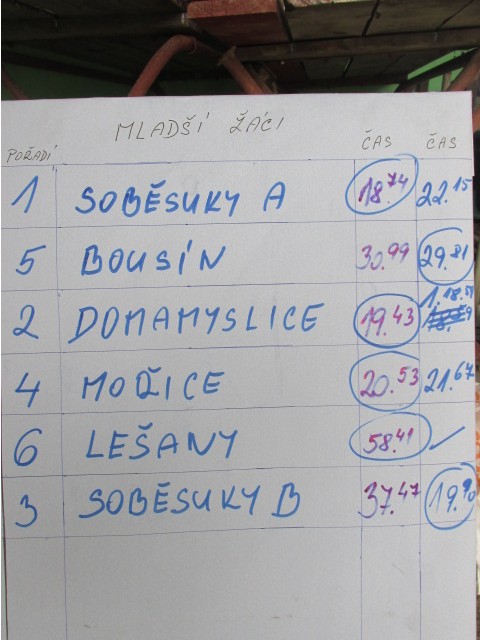 MLADŠÍ ŽÁCI
POŘADÍ ČAS ČAS
1 SOBĚSUKY A 18.74 22.15
5 BOUSÍN 30.99 29.81
2 DOMAMYSLICE 19.43 1.18.59
4 MOŘICE 20.53 21.67
6 LEŠANY 58.41 ✓
3 SOBĚSUKY B 37.47 19.90